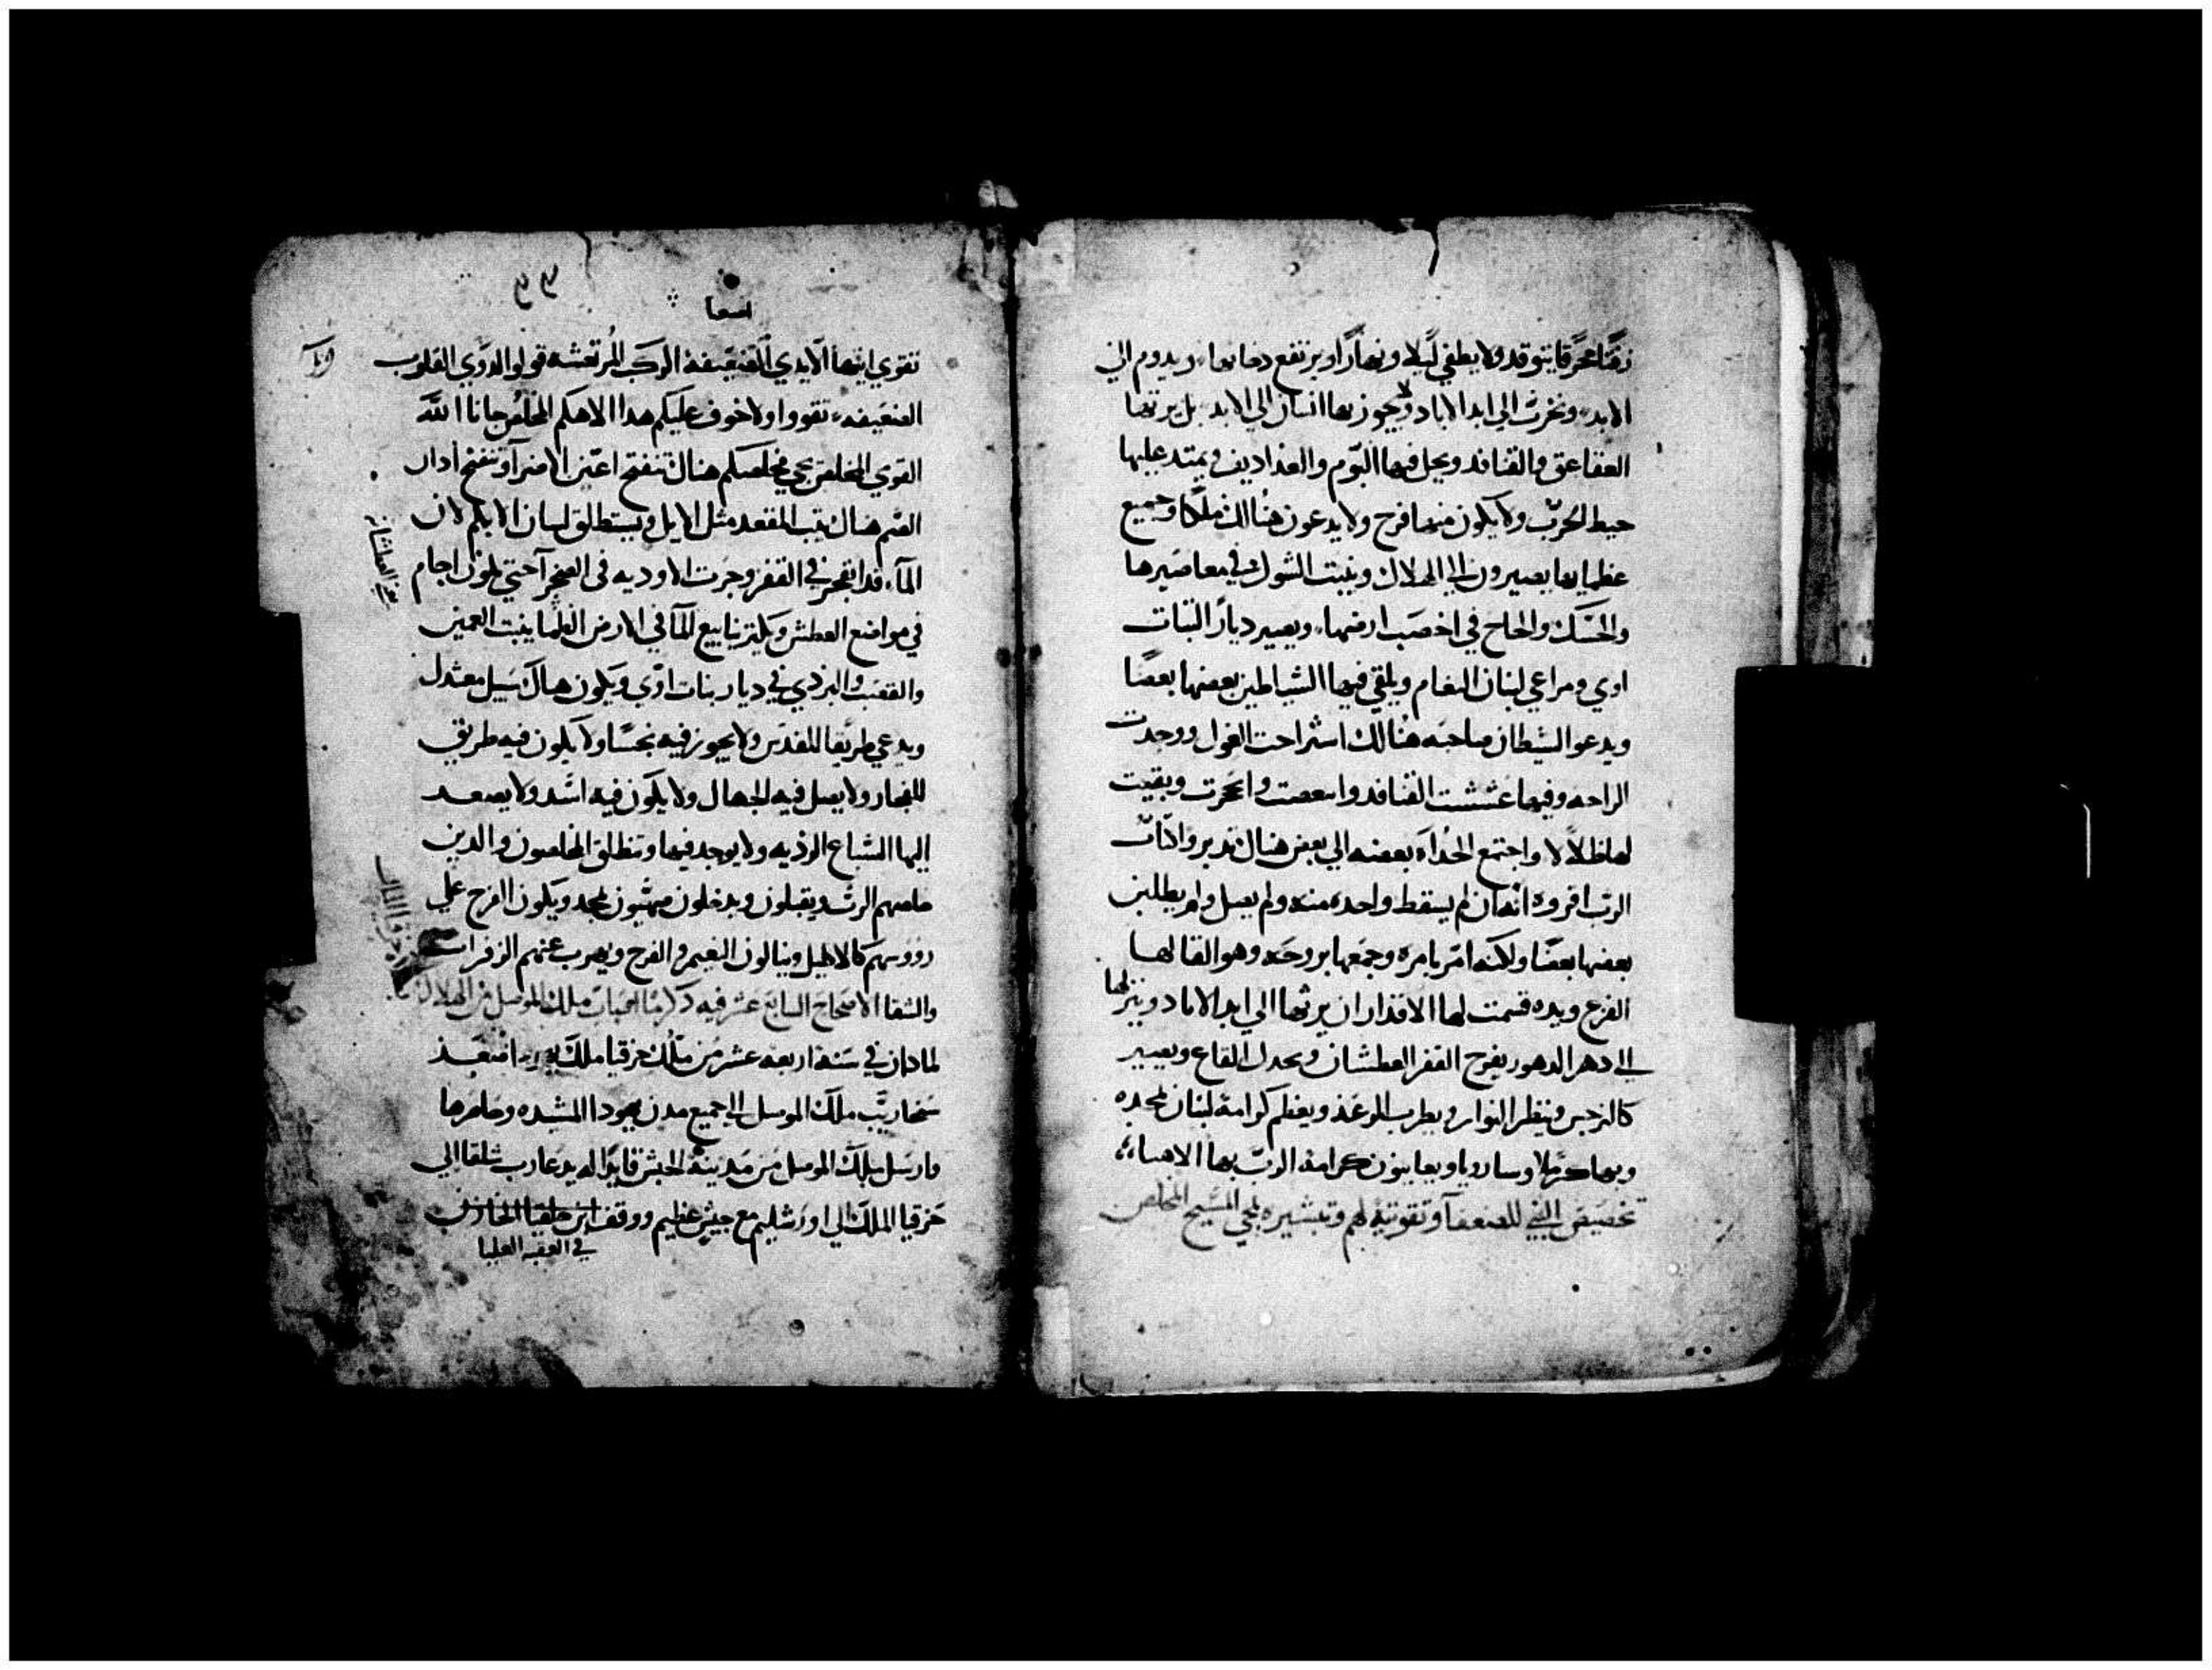 زفتا محرقا يتوقد ولا يطفي ليلا ونهارا ويرتفع دخانها ويدوم الي
الابد ونخرب الي ابد الاباد ولا يجوز بها انسان الي الابد بل يرثها
العقاعق والقنافد ويحل فيها البوم والغداديف ويمتد عليها
حيط الخرب ولا يكون منها فرح ولا يدعون هنالك ملكا وجميع
عظمايها يصيرون الي الهلاك وينبت الشوك في معاصيرها
والحسك والحاح في اخصب ارضها ويصير ديار البنات
اوي ومراعي لبنان النعام ويلتقي فيها الشياطين بعضها بعضا
ويدعو الشيطان صاحبه هنالك استراحت الغول ووجدت
الراحه وفيها عششت القنافد وانحرت وبقيت
لها ظلالا واجتمع الحداء بعضه الي بعض هناك تدبروا كتاب
الرب اقروه انه ان لم يسقط واحده منه ولم يصل ولم يطلبن
بعضها بعضا ولكنه امر بامره وجمعها بروحه وهو القا لها
القرع ويده قسمت لها الاقدار ان يرثها الي ابد الاباد وينزلها
الي دهر الدهور يفرح القفر العطشان ويجدل القاع ويصير
كالنرجس وينظر النوار ويطرب الوعد ويعظم كرامة لبنان لمجده
وبها كرملا وسارونا ويعاينون كرامة الرب بها الاهنا
تحضيض النبي للضعفا وتقويته لهم وتبشيره بمجي المسيح المخلص
اشعيا
تقوي ايتها الايدي الضعيفة الركب المرتعشه قولوا لدوي القلوب
الضعيفه تقووا ولا خوف عليكم هدا الاهكم المخلص جانا الله
القوي المخلص يجي فيخلصكم هناك تنفتح اعين الاضرا وتنفتح ادان
الصم هناك يثب المقعد مثل الايل ويستطلق لسان الابكم لان
الماء قد انفجر في القفر وجرت الاوديه في الصخرا حتي تكون اجام
في مواضع العطش ويكثر ينابيع الما في الارض الظما ينبت العمير
والقصب والبردي في ديار بنات اوي ويكون هناك سبيل معتدل
ويدعي طريقا للقدس ولا يجوز فيه نجسا ولا يكون فيه طريق
للفجار ولا يصل فيه الجهال ولا يكون فيه اسد ولا يصعد
اليها السباع الرديه ولا يوجد فيها وتنطلق المخلصون والدين
خلصهم الرب ويقبلون ويدخلون صهيون بمجد ويكون الفرح علي
رووسهم كالاكليل وينالون النعيم والفرح ويهرب عنهم الزفرات
والشقا الاصحاح السابع عشر فيه دكر ملك الموصل من الهلاك
لما كان في سنة اربعه عشر من ملك حزقيا ملك يهودا صعد
سخاريب ملك الموصل الي جميع مدن يهودا المشيده وحاصرها
وارسل ملك الموصل من مدينة الحبش قايدا له يدعا رب شلقا الي
حزقيا الملك الي اورشليم مع جيش عظيم ووقف
في العقبه العليا